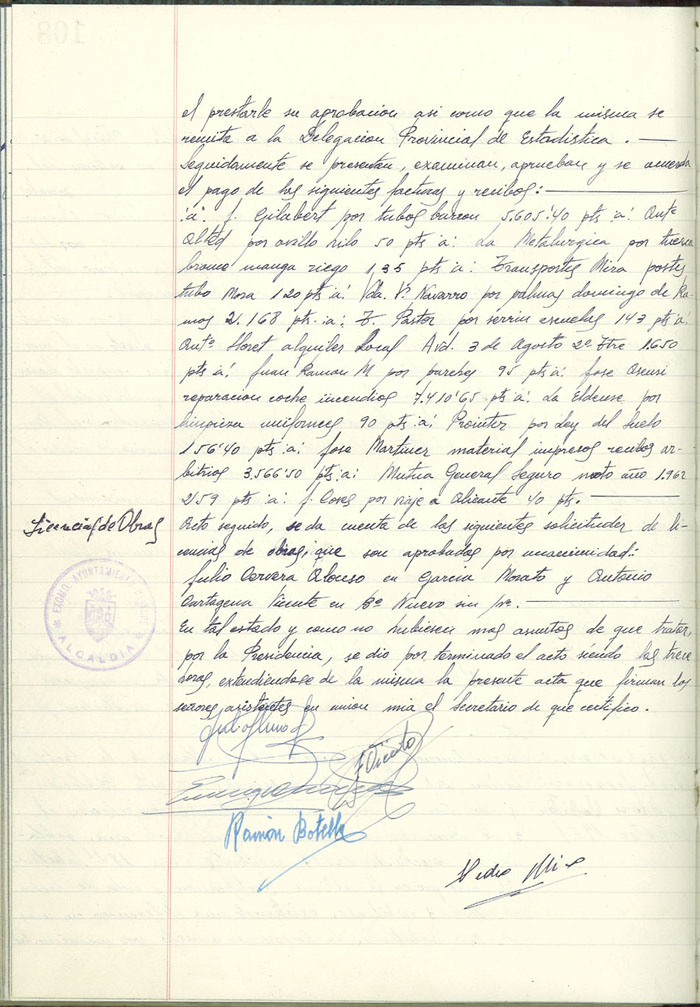 el prestarle su aprobacion asi como que la misma se
remita a la Delegacion Provincial de Estadistica. —
Seguidamente se presentan, examinan, aprueban y se acuerda
el pago de las siguientes facturas y recibos: —
:a: J. Gilabert por tubos 5.605'40 pts :a: Antº
por ovillo hilo 50 pts :a: La Metalurgica por
bronce manga riego 135 pts :a: Transportes Mira portes
tubo Mora 120 pts :a: Vda. Vte Navarro por palmas domingo de Ra
mos 2.168 pts. :a: F. Pastor por serrin escuelas 143 pts :a:
Antº Lloret alquiler Local Avd. 3 de Agosto 2º Ttre 1.650
pts :a: Juan Ramon M por parches 95 pts :a: Jose
reparacion coche incendios 7.410'65 pts :a: La Eldense por
limpieza uniformes 90 pts :a: por Ley del Suelo
156'40 pts :a: Jose Martinez material impresos recibos ar-
bitrios 3.566'50 pts :a: Mutua General Seguro moto año 1.962
2159 pts :a: J. por viaje a Alicante 40 pts. —
Licencias de Obras
Acto seguido, se da cuenta de las siguientes solicitudes de li
cencias de obras, que son aprobadas por unanimidad:
Julio Cervera Alonso en Garcia Morato y Antonio
Cartagena Vicente en Bº Nuevo sin nº. —
En tal estado y como no hubiesen mas asuntos de que tratar,
por la Presidencia, se dio por terminado el acto siendo las trece
horas, extendiendose de la misma la presente acta que firman los
señores asistentes en union mia el Secretario de que certifico.
EXCMO. AYUNTAMIENTO
ALCALDIA
F Vicente
Ramón Botella
Pedro
108